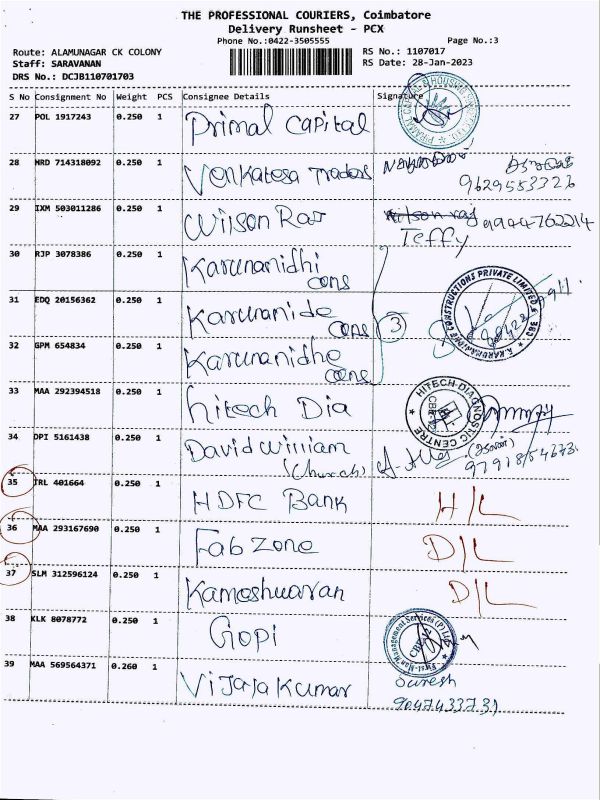 THE PROFESSIONAL COURIERS, Coimbatore
Delivery Runsheet - PCX
Phone No.:0422-3505555 Page No.:3
Route: ALAMUNAGAR CK COLONY RS No.: 1107017
Staff: SARAVANAN RS Date: 28-Jan-2023
DRS No.: DCJB110701703
S No Consignment No Weight PCS Consignee Details Signature
27 POL 1917243 0.250 1 Primal Capital
28 MRD 714318092 0.250 1 Venkatesa Traders
9629553326
29 IXM 503011286 0.250 1 Wilson Raj Wilson raj 9944762214
Teffy
30 RJP 3078386 0.250 1 Karunanidhi
cons
31 EDQ 20156362 0.250 1 Karunanide
cons 3
32 GPM 654834 0.250 1 Karunanidhe
cons
33 MAA 292394518 0.250 1 hitech Dia HITECH-DIAGNOSTIC CENTRE
34 DPI 5161438 0.250 1 David William
(church)
35 TRL 401664 0.250 1 HDFC Bank H/L
36 MAA 293167690 0.250 1 Fab zone D/L
37 SLM 312596124 0.250 1 Kameshwaran D/L
38 KLK 8078772 0.250 1 Gopi
39 MAA 569564371 0.260 1 Vijaja Kumar Suresh
9047433731